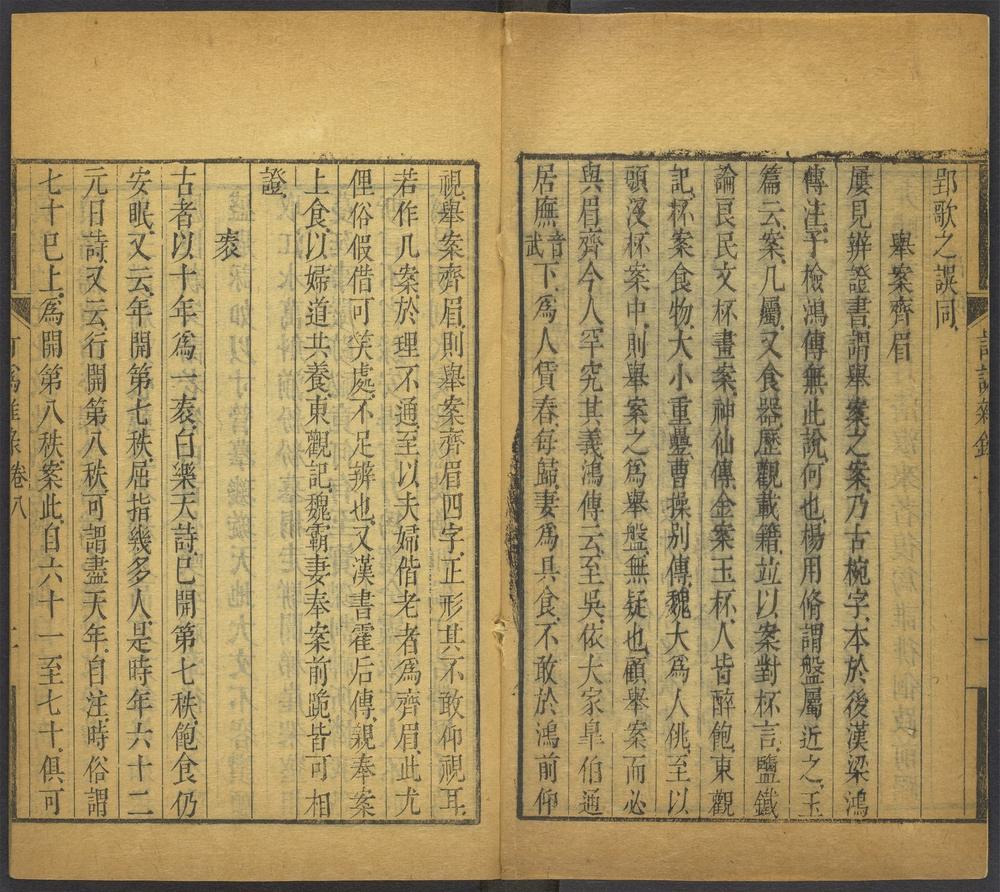 郢歌之誤同
舉案齊眉
屢見辨證書謂舉案之案乃古椀字本於後漢梁鴻
傳注予檢鴻傳無此說何也楊用脩謂盤屬近之玉
篇云案几屬又食器歷觀載籍竝以案對杯言鹽鐵
論良民文杯畫案神仙傳金案玉杯人皆醉飽東觀
記杯案食物大小重疊曹操別傳魏大為人佻至以
頭沒杯案中則舉案之為舉盤無疑也顧舉案而必
與眉齊今人罕究其義鴻傳云至吳依大家皐伯通
居廡音武下為人賃舂每歸妻為具食不敢於鴻前仰
視舉案齊眉則舉案齊眉四字正形其不敢仰視耳
若作几案於理不通至以夫婦偕老者為齊眉此尤
俚俗假借可笑處不足辨也又漢書霍后傳親奉案
上食以婦道共養東觀記魏霸妻奉案前跪皆可相
證
袠
古者以十年為一袠白樂天詩已開第七秩飽食仍
安眠又云年開第七秩屈指幾多人是時年六十二
元日詩又云行開第八秩可謂盡天年自注時俗謂
七十巳上為開第八秩案此自六十一至七十俱可
卷八